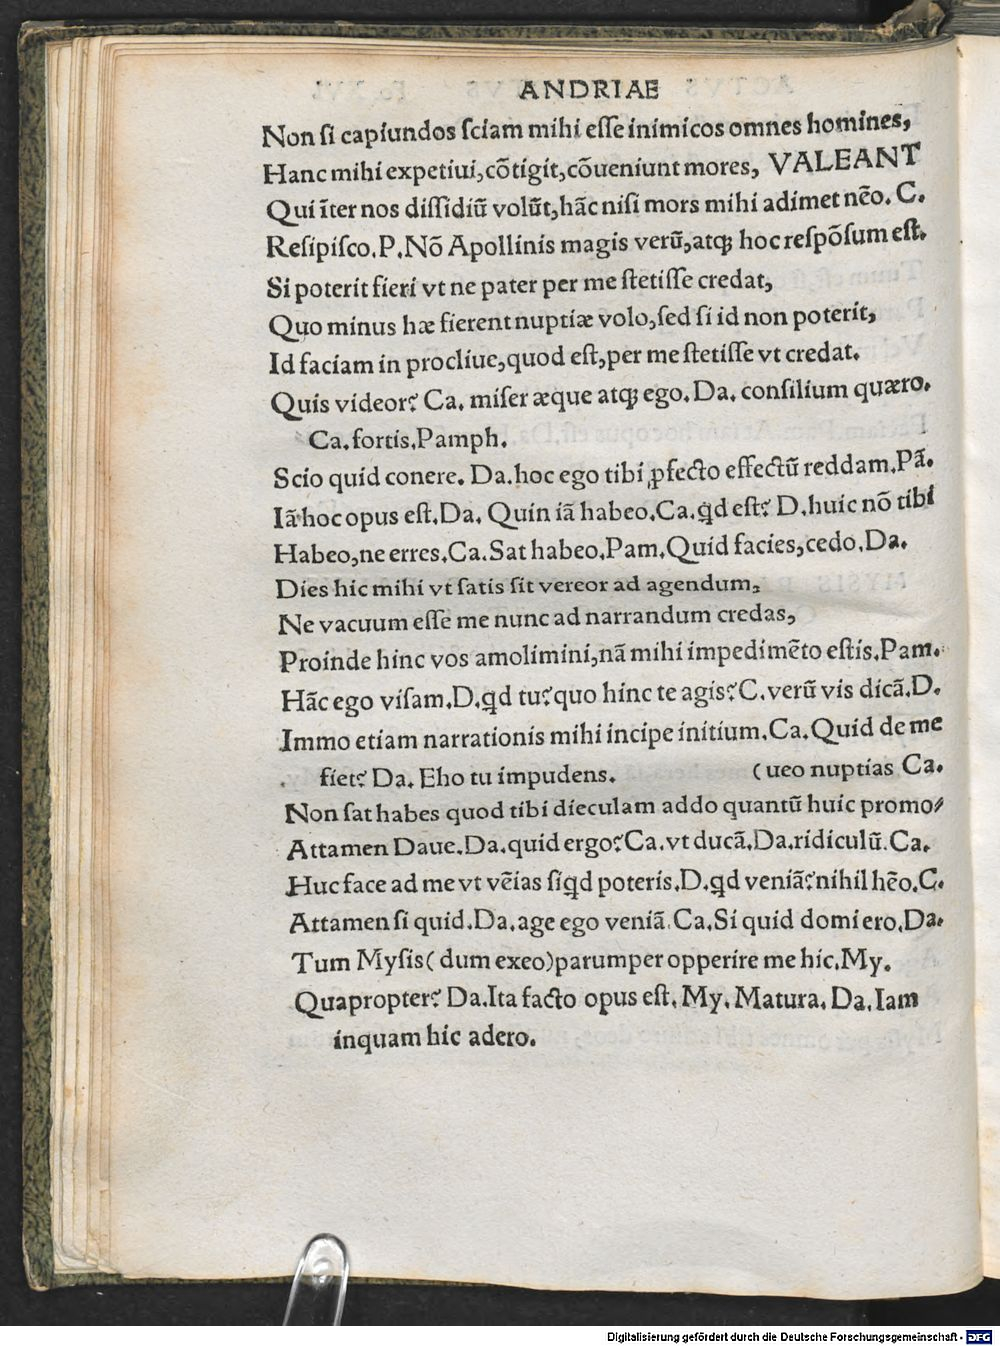 ANDRIAE
Non ſi capiundos ſciam mihi eſſe inimicos omnes homines,
Hanc mihi expetiui, cõtigit, cõueniunt mores, VALEANT
Qui ĩter nos diſſidiũ volũt, hãc niſi mors mihi adimet nẽo. C.
Reſipiſco. P. Nõ Apollinis magis verũ, atqꝫ hoc reſpõſum eſt.
Si poterit fieri vt ne pater per me ſtetiſſe credat,
Quo minus hæ fierent nuptiæ volo, ſed ſi id non poterit,
Id faciam in procliue, quod eſt, per me ſtetiſſe vt credat.
Quis videor? Ca. miſer æque atqꝫ ego. Da. conſilium quæro.
Ca. fortis. Pamph.
Scio quid conere. Da. hoc ego tibi ꝓfecto effectũ reddam. Pã.
Iã hoc opus eſt. Da. Quin iã habeo. Ca. qd eſt? D. huic nõ tibi
Habeo, ne erres. Ca. Sat habeo. Pam. Quid facies, cedo. Da.
Dies hic mihi vt ſatis ſit vereor ad agendum,
Ne vacuum eſſe me nunc ad narrandum credas,
Proinde hinc vos amolimini, nã mihi impedimẽto eſtis. Pam.
Hãc ego viſam. D. qd tu? quo hinc te agis? C. verũ vis dicã. D.
Immo etiam narrationis mihi incipe initium. Ca. Quid de me
fiet? Da. Eho tu impudens. (ueo nuptias Ca.
Non ſat habes quod tibi dieculam addo quantũ huic promo⸗
Attamen Daue. Da. quid ergo? Ca. vt ducã. Da. ridiculũ. Ca.
Huc face ad me vt vẽias ſiqd poteris. D. qd veniã? nihil hẽo. C.
Attamen ſi quid. Da. age ego veniã. Ca. Si quid domi ero. Da.
Tum Myſis (dum exeo) parumper opperire me hic. My.
Quapropter? Da. Ita facto opus eſt. My. Matura. Da. Iam
inquam hic adero.
Digitalisierung gefördert durch die Deutsche Forschungsgemeinschaft - DFG